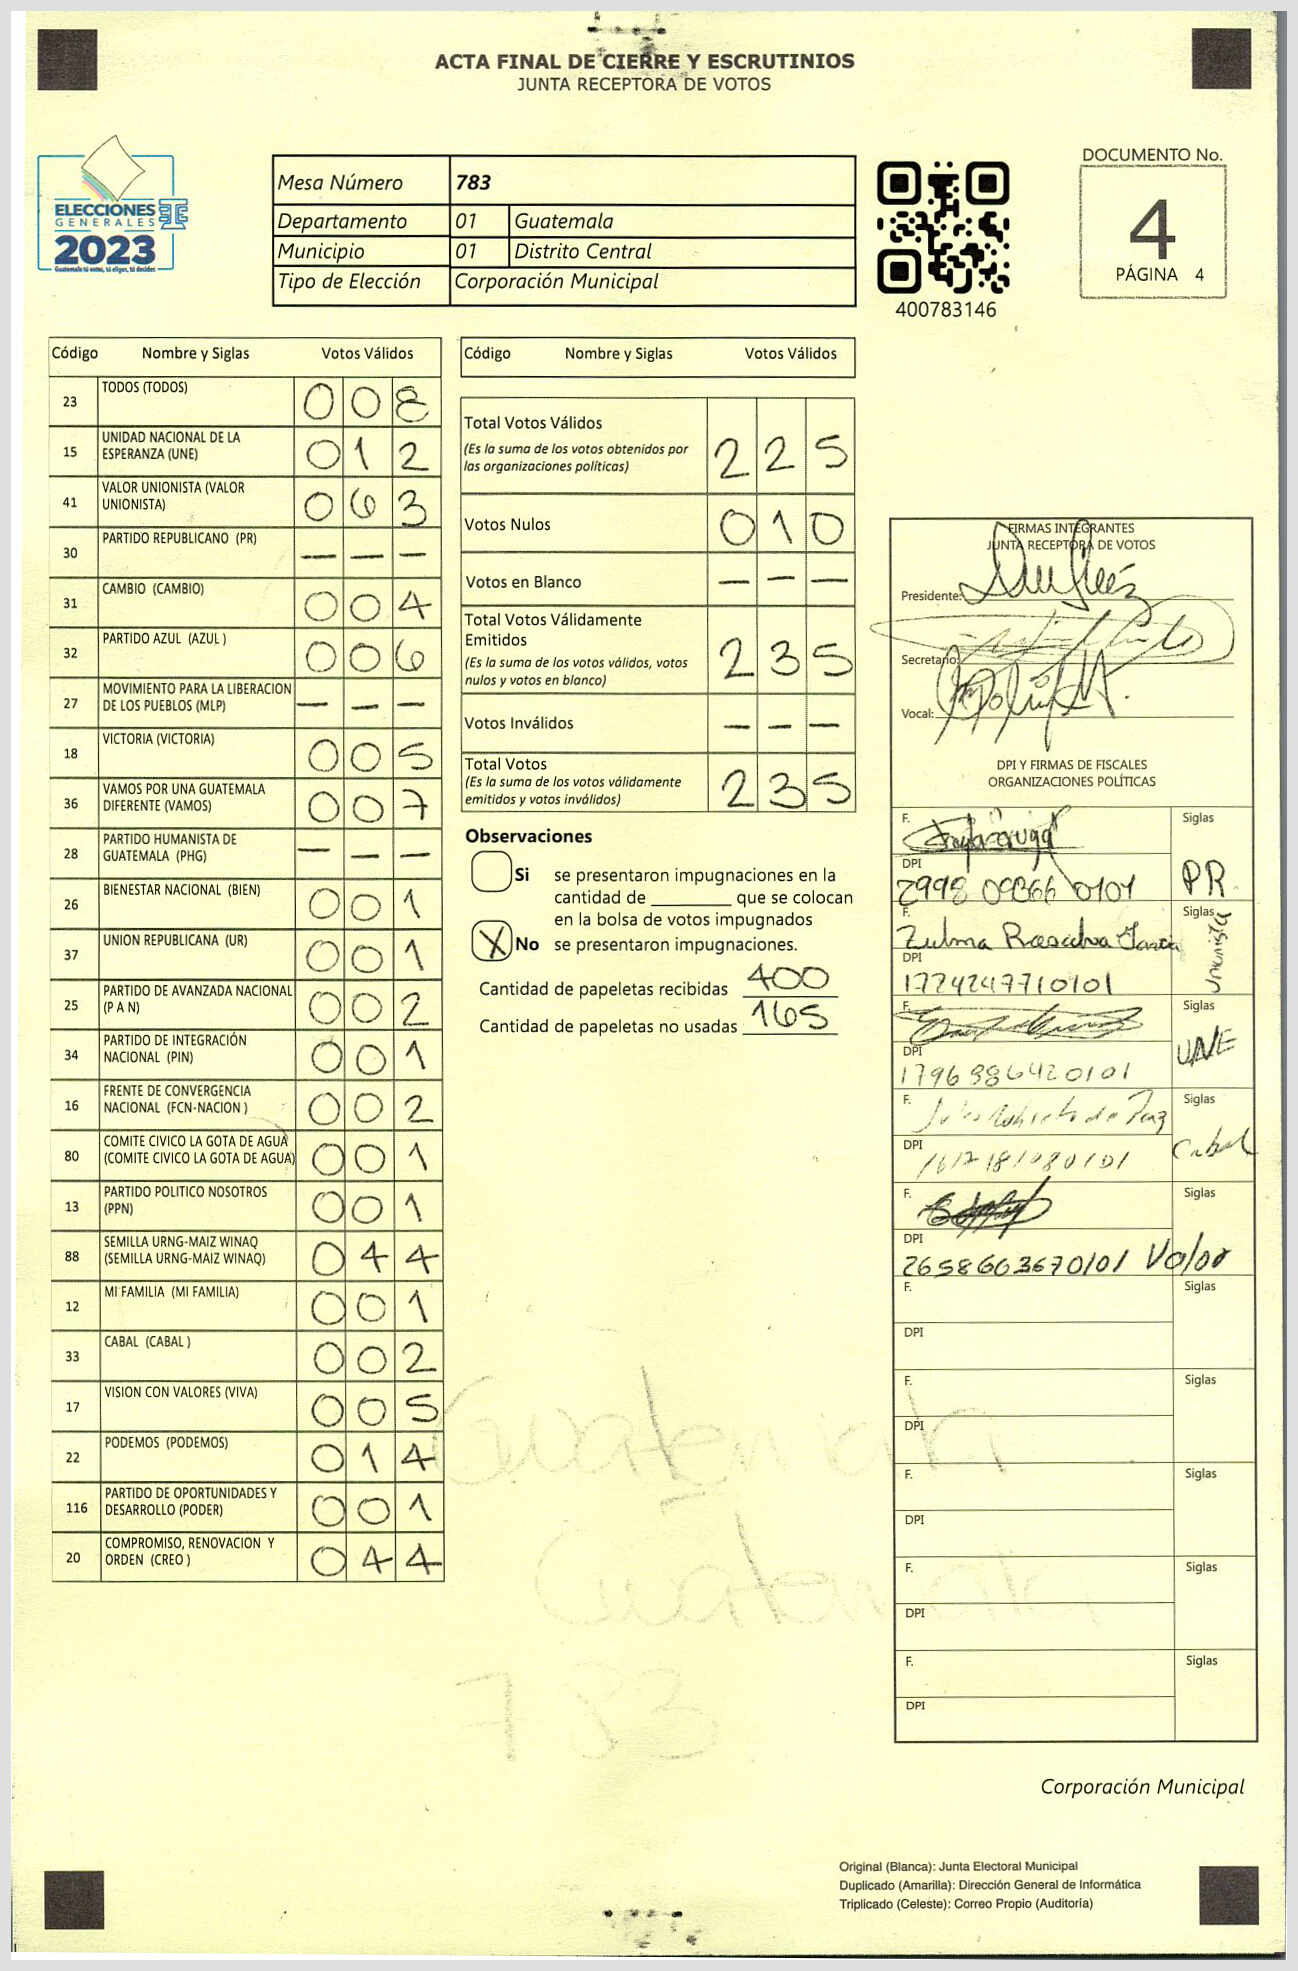 ACTA FINAL DE CIERRE Y ESCRUTINIOS
JUNTA RECEPTORA DE VOTOS
ELECCIONES
GENERALES
2023
Guatemala tú votas, tú eliges, tú decides
Mesa Número 783
Departamento 01 Guatemala
Municipio 01 Distrito Central
Tipo de Elección Corporación Municipal
400783146
DOCUMENTO No.
4
PÁGINA 4
Código Nombre y Siglas Votos Válidos
23 TODOS (TODOS) 0 0 8
15 UNIDAD NACIONAL DE LA
ESPERANZA (UNE) 0 1 2
41 VALOR UNIONISTA (VALOR
UNIONISTA) 0 6 3
30 PARTIDO REPUBLICANO (PR) — — —
31 CAMBIO (CAMBIO) 0 0 4
32 PARTIDO AZUL (AZUL ) 0 0 6
27 MOVIMIENTO PARA LA LIBERACION
DE LOS PUEBLOS (MLP) — — —
18 VICTORIA (VICTORIA) 0 0 5
36 VAMOS POR UNA GUATEMALA
DIFERENTE (VAMOS) 0 0 7
28 PARTIDO HUMANISTA DE
GUATEMALA (PHG) — — —
26 BIENESTAR NACIONAL (BIEN) 0 0 1
37 UNION REPUBLICANA (UR) 0 0 1
25 PARTIDO DE AVANZADA NACIONAL
(P A N) 0 0 2
34 PARTIDO DE INTEGRACIÓN
NACIONAL (PIN) 0 0 1
16 FRENTE DE CONVERGENCIA
NACIONAL (FCN-NACION ) 0 0 2
80 COMITE CIVICO LA GOTA DE AGUA
(COMITE CIVICO LA GOTA DE AGUA) 0 0 1
13 PARTIDO POLITICO NOSOTROS
(PPN) 0 0 1
88 SEMILLA URNG-MAIZ WINAQ
(SEMILLA URNG-MAIZ WINAQ) 0 4 4
12 MI FAMILIA (MI FAMILIA) 0 0 1
33 CABAL (CABAL ) 0 0 2
17 VISION CON VALORES (VIVA) 0 0 5
22 PODEMOS (PODEMOS) 0 1 4
116 PARTIDO DE OPORTUNIDADES Y
DESARROLLO (PODER) 0 0 1
20 COMPROMISO, RENOVACION Y
ORDEN (CREO ) 0 4 4
Código Nombre y Siglas Votos Válidos
Total Votos Válidos
(Es la suma de los votos obtenidos por
las organizaciones políticas) 2 2 5
Votos Nulos 0 1 0
Votos en Blanco — — —
Total Votos Válidamente
Emitidos
(Es la suma de los votos válidos, votos
nulos y votos en blanco) 2 3 5
Votos Inválidos — — —
Total Votos
(Es la suma de los votos válidamente
emitidos y votos inválidos) 2 3 5
Observaciones
Si se presentaron impugnaciones en la
cantidad de ________ que se colocan
en la bolsa de votos impugnados
X No se presentaron impugnaciones.
Cantidad de papeletas recibidas 400
Cantidad de papeletas no usadas 165
FIRMAS INTEGRANTES
JUNTA RECEPTORA DE VOTOS
Presidente:
Secretario:
Vocal:
DPI Y FIRMAS DE FISCALES
ORGANIZACIONES POLÍTICAS
F. Siglas
PR.
DPI
2998 09366 0101
F. Zulma Siglas
Unionista
DPI
1774247710101
F. Siglas
UNE
DPI
1796986420101
F. Siglas
Cabal
DPI
F. Siglas
Valor
DPI
2658663670101
F. Siglas
DPI
F. Siglas
DPI
F. Siglas
DPI
F. Siglas
DPI
F. Siglas
DPI
Guatemala
Guatemala
783
Corporación Municipal
Original (Blanca): Junta Electoral Municipal
Duplicado (Amarilla): Dirección General de Informática
Triplicado (Celeste): Correo Propio (Auditoría)